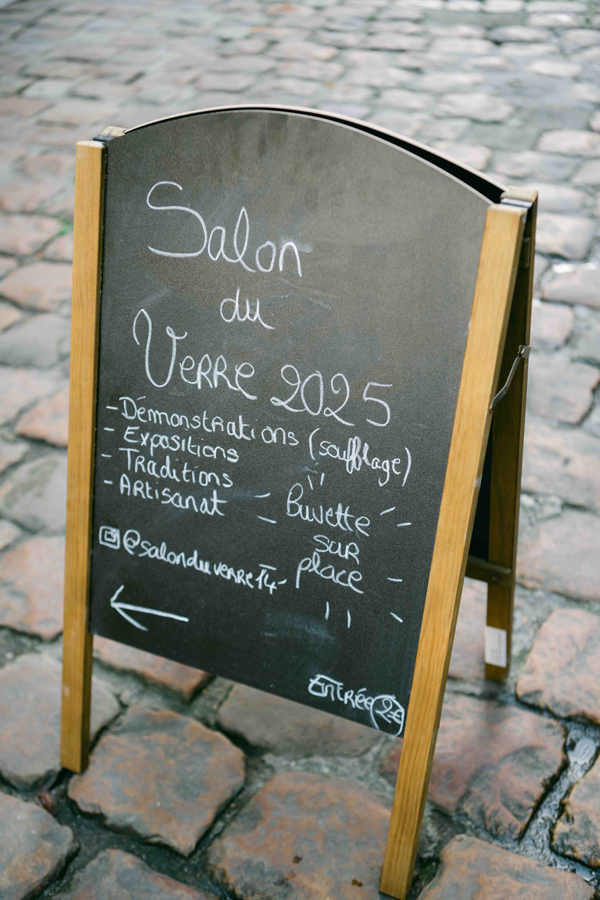 Salon
du
Verre 2025
- Démonstrations (soufflage)
- Expositions
- Traditions
- Artisanat
Buvette
sur
place
@salonduverre14
Entrée 2€